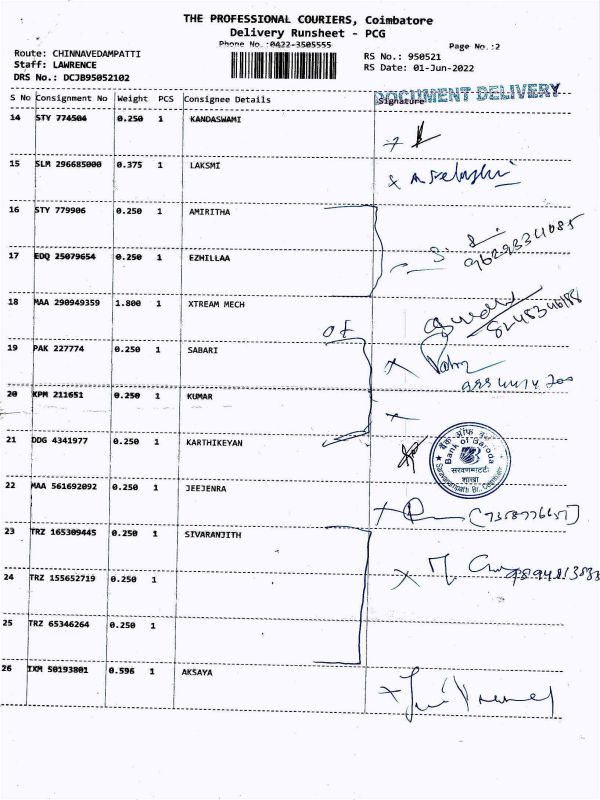 THE PROFESSIONAL COURIERS, Coimbatore
Delivery Runsheet - PCG
Phone No.:0422-3505555
Page No.:2
Route: CHINNAVEDAMPATTI
RS No.: 950521
Staff: LAWRENCE
RS Date: 01-Jun-2022
DRS No.: DCJB95052102
DOCUMENT DELIVERY
S No Consignment No Weight PCS Consignee Details Signature
14 STY 774504 0.250 1 KANDASWAMI
15 SLM 296685000 0.375 1 LAKSMI
16 STY 779906 0.250 1 AMIRITHA
9629334085
17 EDQ 25079654 0.250 1 EZHILLAA
18 MAA 290949359 1.800 1 XTREAM MECH
8248346188
19 PAK 227774 0.250 1 SABARI
20 KPM 211651 0.250 1 KUMAR
21 DDG 4341977 0.250 1 KARTHIKEYAN
Bank of Baroda
शाखा
22 MAA 561692092 0.250 1 JEEJENRA
23 TRZ 165309445 0.250 1 SIVARANJITH
24 TRZ 155652719 0.250 1
25 TRZ 65346264 0.250 1
26 IXM 50193801 0.596 1 AKSAYA